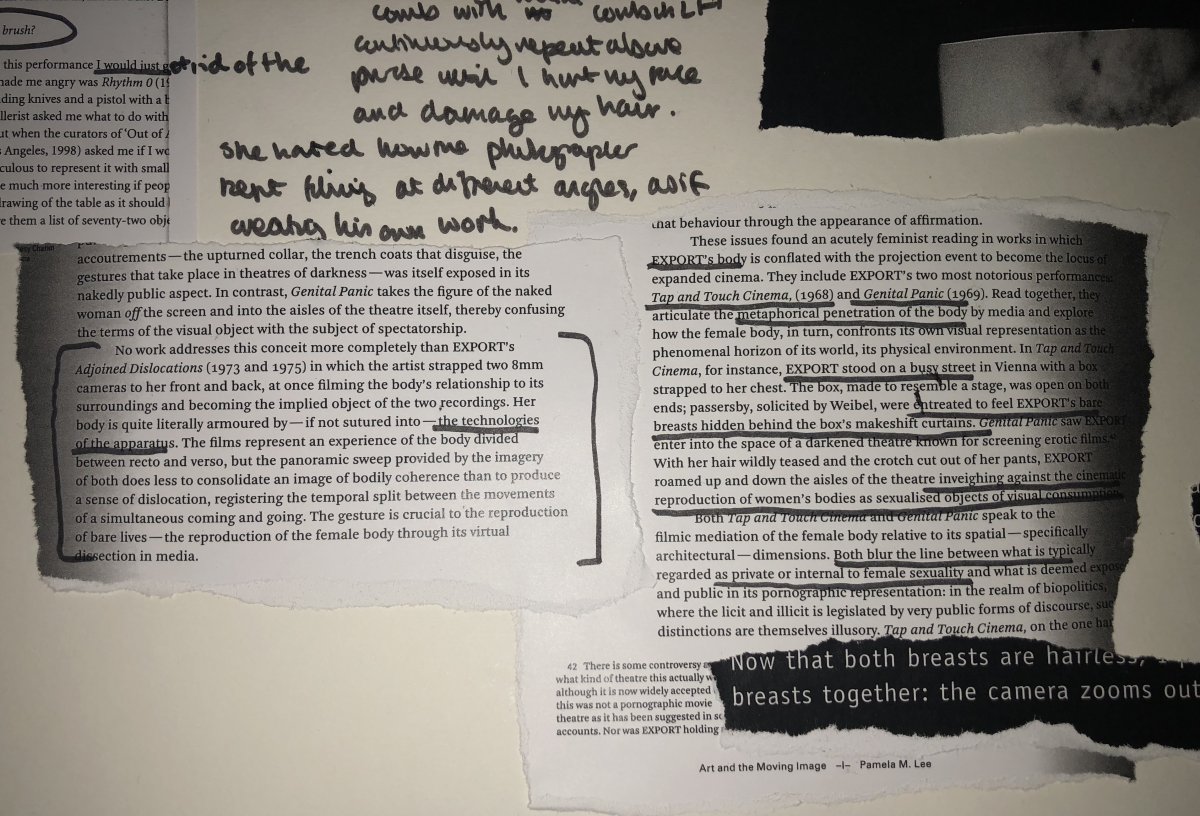 brush?
this performance I would just get rid of the
made me angry was Rhythm 0 (19
ding knives and a pistol with a b
llerist asked me what to do with
ut when the curators of 'Out of A
Angeles, 1998) asked me if I wo
culous to represent it with small
e much more interesting if peop
drawing of the table as it should
e them a list of seventy-two obje
comb with
continuously repeat above
until I hurt my face
and damage my hair.
she hated how the photographer
kept filming at different angles, as if
creating his own work.
accoutrements — the upturned collar, the trench coats that disguise, the
gestures that take place in theatres of darkness — was itself exposed in its
nakedly public aspect. In contrast, Genital Panic takes the figure of the naked
woman off the screen and into the aisles of the theatre itself, thereby confusing
the terms of the visual object with the subject of spectatorship.
No work addresses this conceit more completely than EXPORT's
Adjoined Dislocations (1973 and 1975) in which the artist strapped two 8mm
cameras to her front and back, at once filming the body's relationship to its
surroundings and becoming the implied object of the two recordings. Her
body is quite literally armoured by — if not sutured into — the technologies
of the apparatus. The films represent an experience of the body divided
between recto and verso, but the panoramic sweep provided by the imagery
of both does less to consolidate an image of bodily coherence than to produce
a sense of dislocation, registering the temporal split between the movements
of a simultaneous coming and going. The gesture is crucial to the reproduction
of bare lives — the reproduction of the female body through its virtual
dissection in media.
that behaviour through the appearance of affirmation.
These issues found an acutely feminist reading in works in which
EXPORT's body is conflated with the projection event to become the locus of
expanded cinema. They include EXPORT's two most notorious performances,
Tap and Touch Cinema, (1968) and Genital Panic (1969). Read together, they
articulate the metaphorical penetration of the body by media and explore
how the female body, in turn, confronts its own visual representation as the
phenomenal horizon of its world, its physical environment. In Tap and Touch
Cinema, for instance, EXPORT stood on a busy street in Vienna with a box
strapped to her chest. The box, made to resemble a stage, was open on both
ends; passersby, solicited by Weibel, were entreated to feel EXPORT's bare
breasts hidden behind the box's makeshift curtains. Genital Panic saw EXPORT
enter into the space of a darkened theatre known for screening erotic films.
With her hair wildly teased and the crotch cut out of her pants, EXPORT
roamed up and down the aisles of the theatre inveighing against the cinematic
reproduction of women's bodies as sexualised objects of visual consumption.
Both Tap and Touch Cinema and Genital Panic speak to the
filmic mediation of the female body relative to its spatial — specifically
architectural — dimensions. Both blur the line between what is typically
regarded as private or internal to female sexuality and what is deemed expose
and public in its pornographic representation: in the realm of biopolitics,
where the licit and illicit is legislated by very public forms of discourse, suc
distinctions are themselves illusory. Tap and Touch Cinema, on the one han
42 There is some controversy a
what kind of theatre this actually w
although it is now widely accepted
this was not a pornographic movie
theatre as it has been suggested in so
accounts. Nor was EXPORT holding
Now that both breasts are hairless,
breasts together: the camera zooms out
Art and the Moving Image –|– Pamela M. Lee